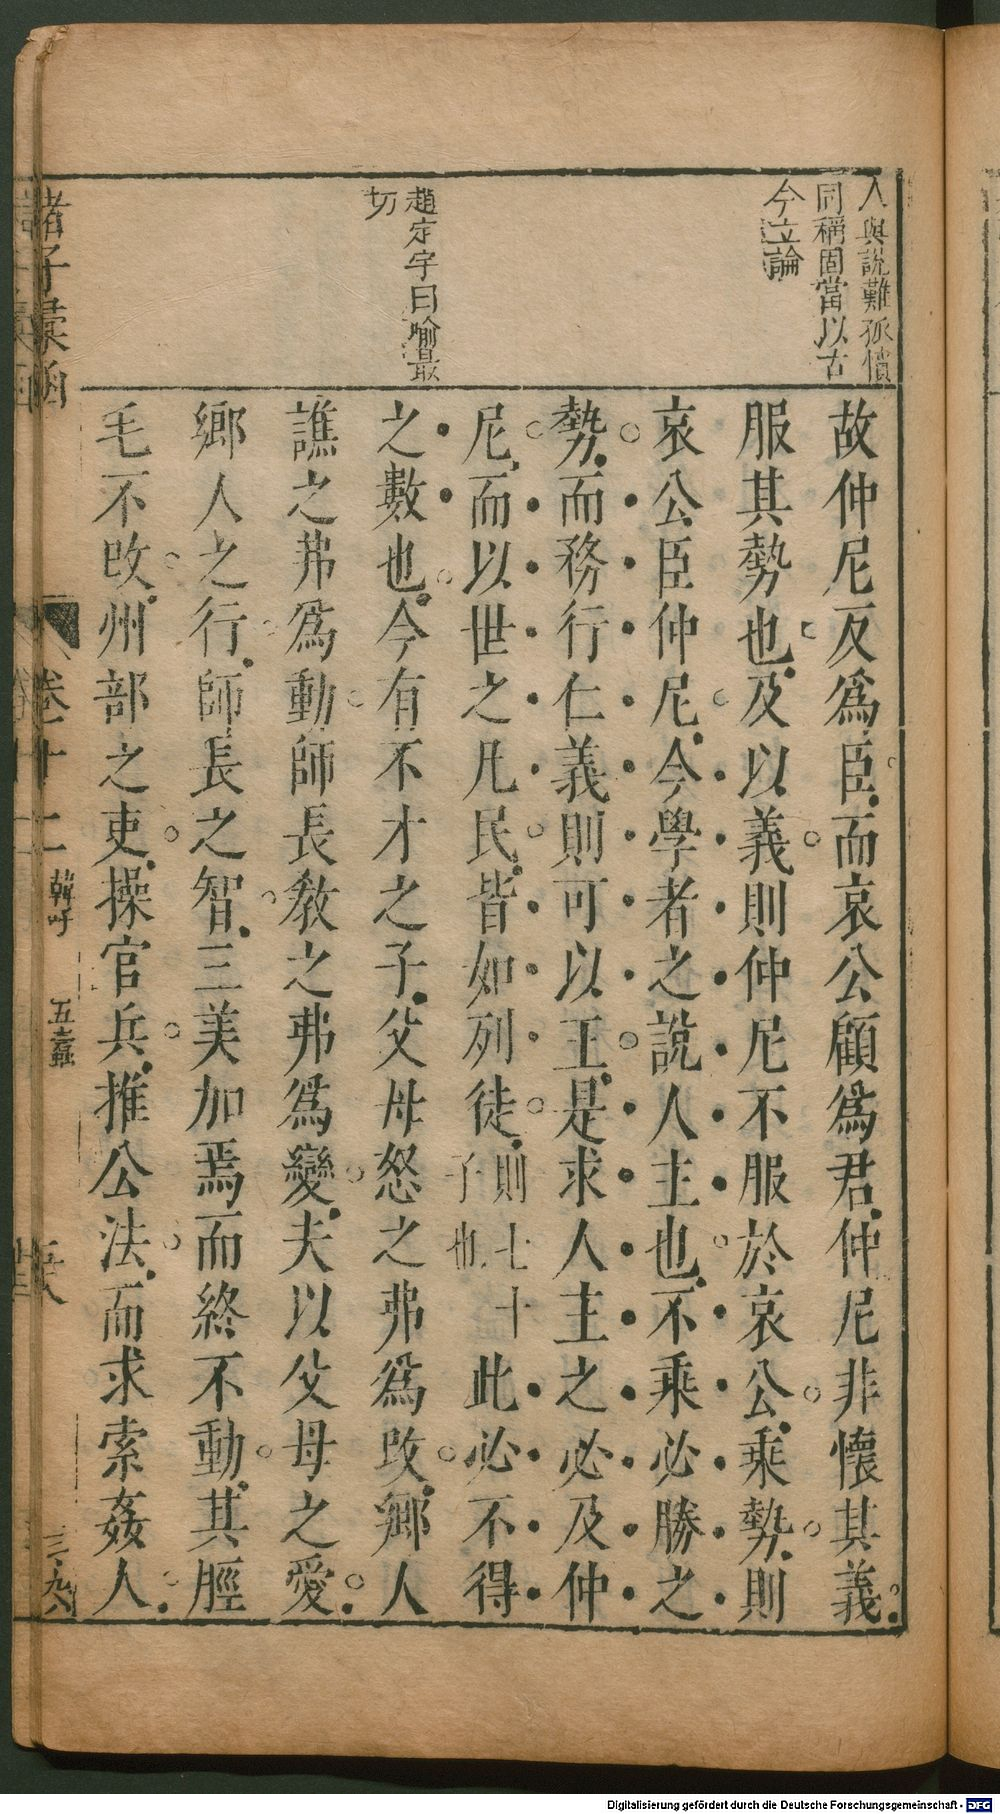 人與說難孤憤
同稱固當以古
今立論
趙定宇曰喻最
切
故仲尼反爲臣而哀公顧爲君仲尼非懷其義
服其勢也及以義則仲尼不服於哀公乘勢則
哀公臣仲尼今學者之說人主也不乘必勝之
勢而務行仁義則可以王是求人主之必及仲
尼而以世之凡民皆如列徒則七十子也此必不得
之數也今有不才之子父母怒之弗爲改鄉人
譙之弗爲動師長敎之弗爲變夫以父母之愛
鄉人之行師長之智三美加焉而終不動其脛
毛不改州部之吏操官兵推公法而求索姦人
諸子彙函
卷十二
五蠹
Digitalisierung gefördert durch die Deutsche Forschungsgemeinschaft - DFG